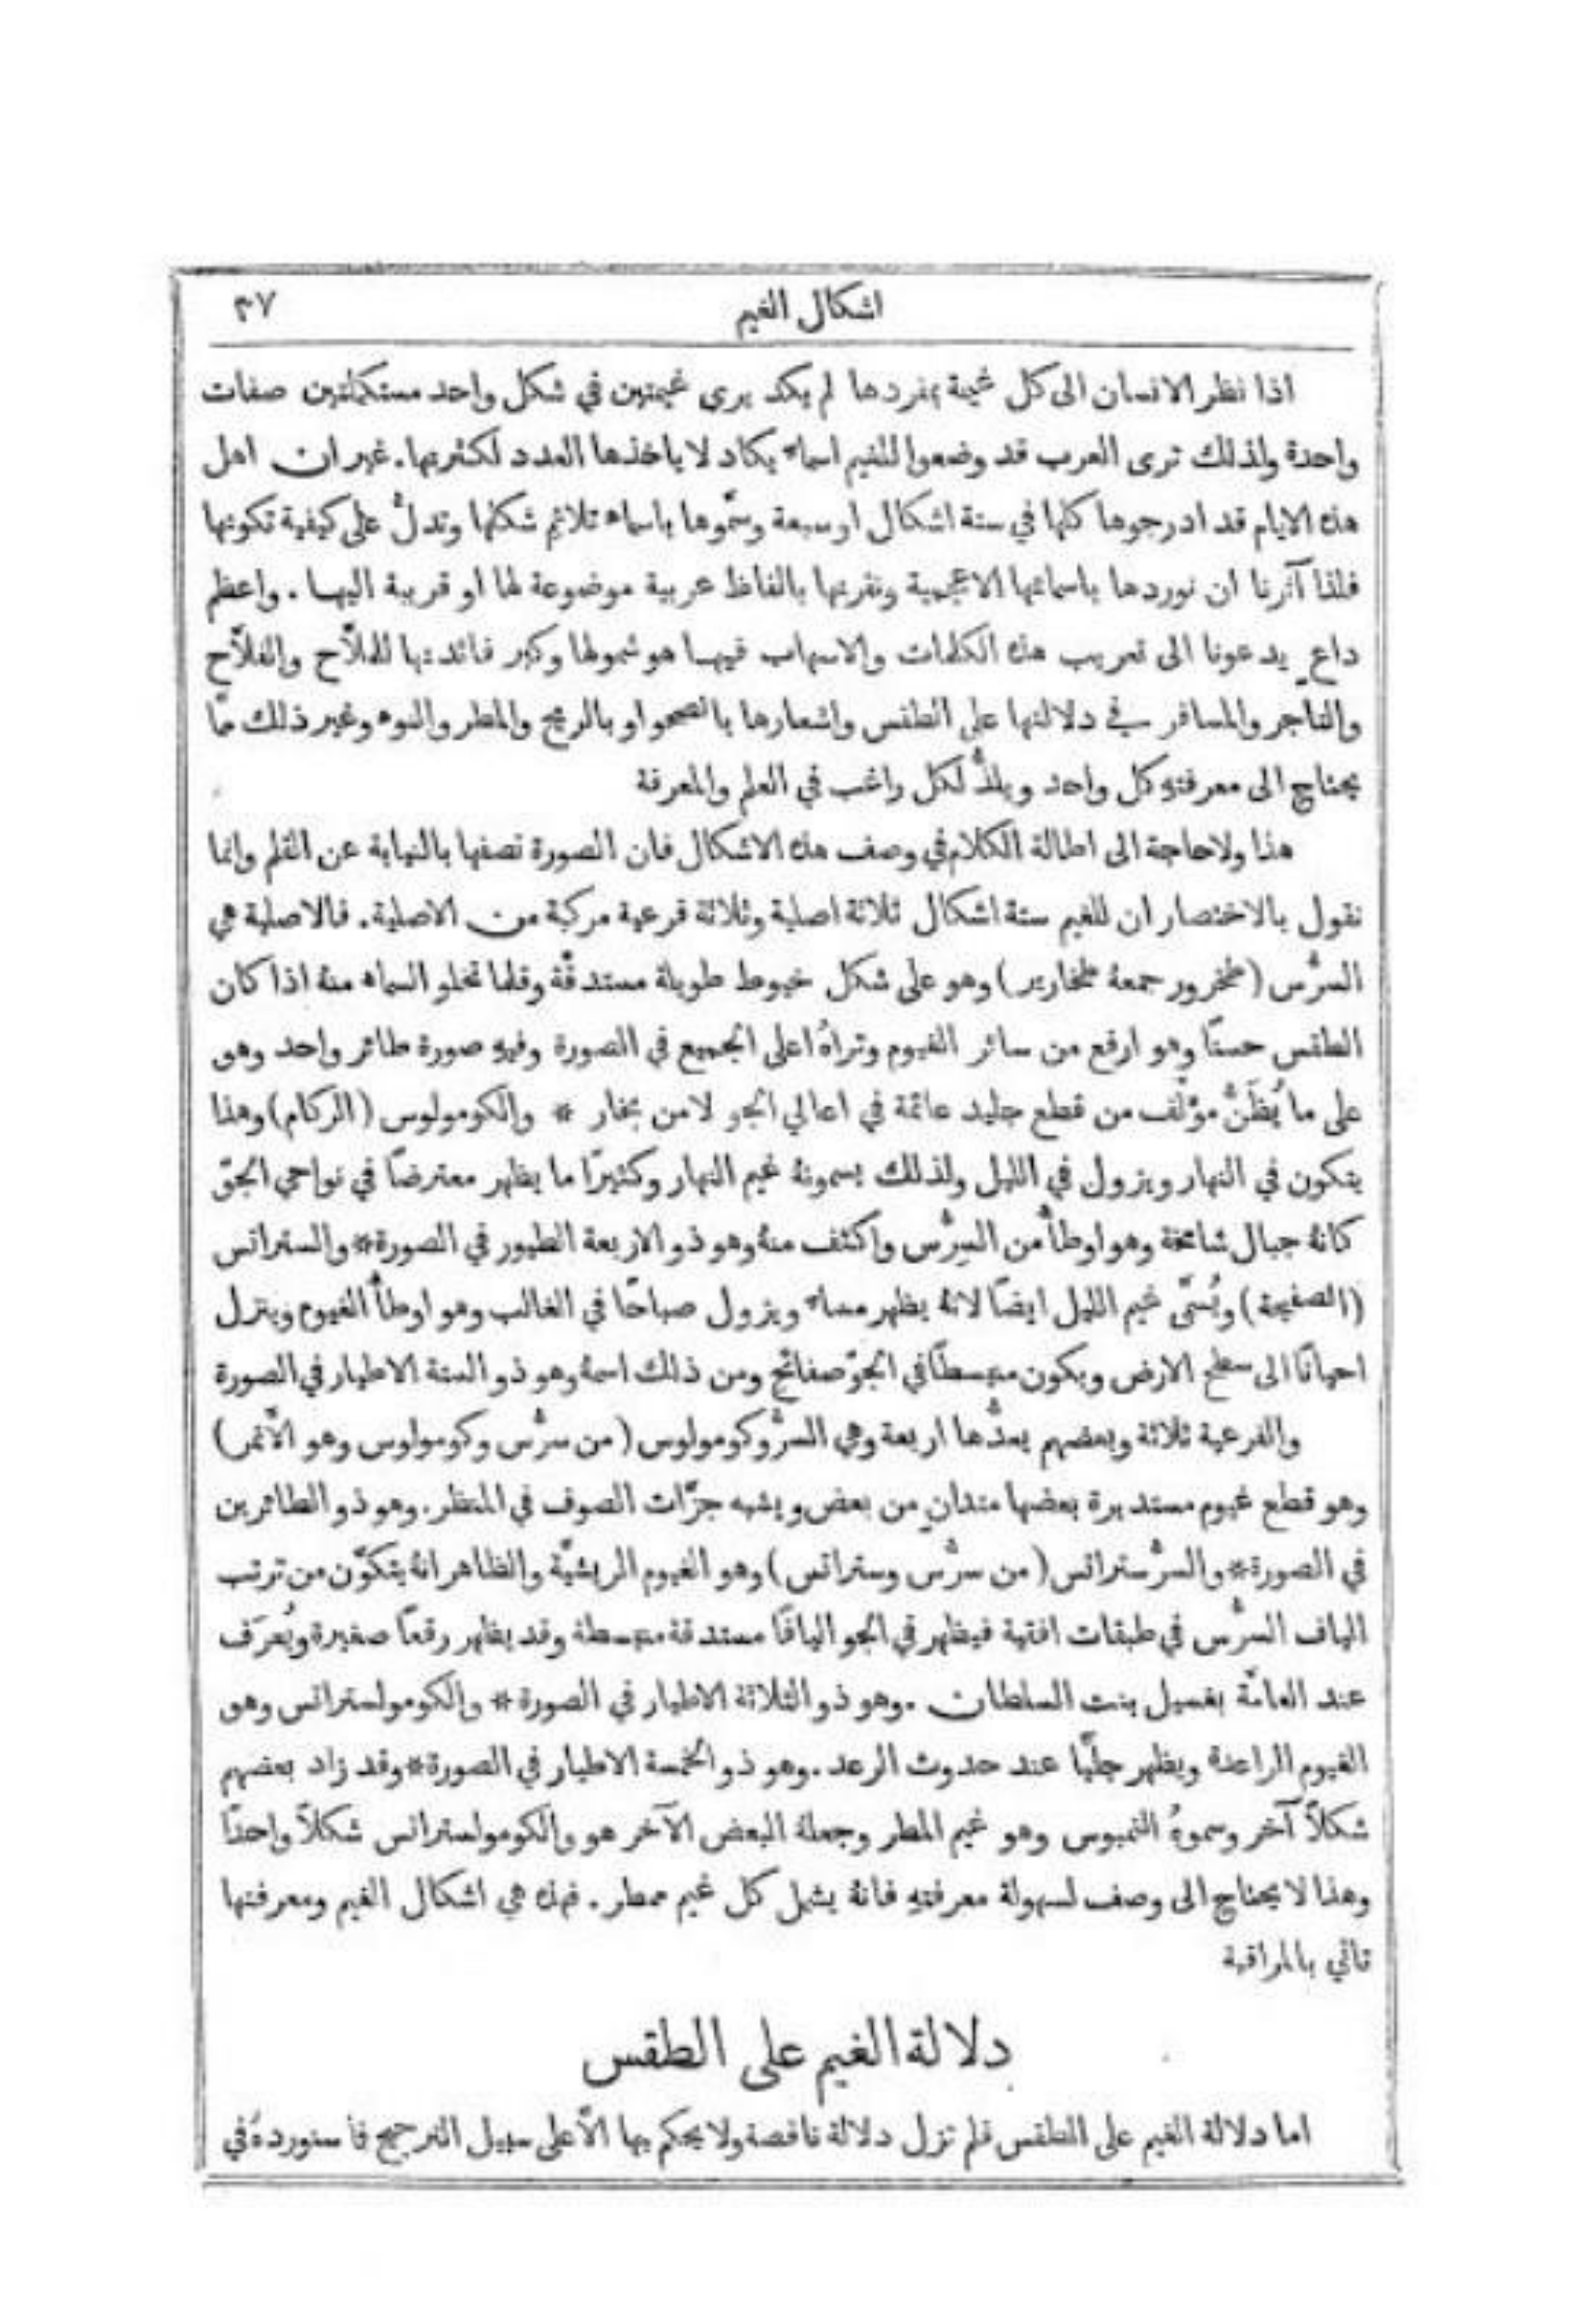 اشكال الغيم ٣٧
اذا نظر الانسان الى كل غيمة بمفردها لم يكد يرى غيمتين في شكل واحد مستكملتين صفات
واحدة ولذلك ترى العرب قد وضعوا للغيم اسماء يكاد لا ياخذها العدد لكثرتها. غير ان اهل
هذه الايام قد ادرجوها كلها في ستة اشكال او سبعة وسمّوها باسماء تلائم شكلها وتدلُّ على كيفية تكونها
فلذا آثرنا ان نوردها باسمائها الاعجمية ونقرنها بالفاظ عربية موضوعة لها او قريبة اليها. واعظم
داعٍ يدعونا الى تعريب هذه الكلمات والاسهاب فيها هو شمولها وكبر فائدتها للملّاح والفلّاح
والتاجر والمسافر في دلالتها على الطقس واشعارها بالصحو او بالريح والمطر والنوء وغير ذلك ممّا
يحتاج الى معرفتهِ كل واحد ويلذُّ لكل راغب في العلم والمعرفة
هذا ولا حاجة الى اطالة الكلام في وصف هذه الاشكال فان الصورة تصفها بالنيابة عن القلم وانما
نقول بالاختصار ان للغيم ستة اشكال ثلاثة اصلية وثلاثة فرعية مركبة من الاصلية. فالاصلية هي
السرُّس (طخرور جمعهُ طخارير) وهو على شكل خيوط طويلة مستدقّة وقلما تخلو السماء منهُ اذا كان
الطقس حسنًا وهو ارفع من سائر الغيوم وتراهُ اعلى الجميع في الصورة وفيهِ صورة طائر واحد وهو
على ما يُظَنُّ مؤلّف من قطع جليد عائمة في اعالي الجو لا من بخار * والكومولوس (الركام) وهذا
يتكون في النهار ويزول في الليل ولذلك يسمونهُ غيم النهار وكثيرًا ما يظهر معترضًا في نواحي الجوّ
كانهُ جبال شامخة وهو اوطأُ من السِرُّس واكثف منهُ وهو ذو الاربعة الطيور في الصورة * والستراتس
(الصفيحة) ويُسمّى غيم الليل ايضًا لانهُ يظهر مساء ويزول صباحًا في الغالب وهو اوطأُ الغيوم وينزل
احيانًا الى سطح الارض ويكون منبسطًا في الجوّ صفائح ومن ذلك اسمهُ وهو ذو الستة الاطيار في الصورة
والفرعية ثلاثة وبعضهم يعدُّها اربعة وهي السرُّوكومولوس (من سرُّس وكومولوس وهو الأنمر)
وهو قطع غيوم مستديرة بعضها متدانٍ من بعض ويشبه جزّات الصوف في المنظر. وهو ذو الطائرين
في الصورة * والسرُّستراتس (من سرُّس وستراتس) وهو الغيوم الريشيّة والظاهر انهُ يتكوّن من ترتب
الياف السرُّس في طبقات افقية فيظهر في الجو اليافًا مستدقة منبسطة وقد يظهر رقعًا صغيرة ويُعرَف
عند العامّة بغسيل بنت السلطان. وهو ذو الثلاثة الاطيار في الصورة * والكومولستراتس وهو
الغيوم الراعدة ويظهر جليًّا عند حدوث الرعد. وهو ذو الخمسة الاطيار في الصورة * وقد زاد بعضهم
شكلاً آخر وسموهُ النمبوس وهو غيم المطر وجعلهُ البعض الآخر هو والكومولستراتس شكلاً واحدًا
وهذا لا يحتاج الى وصف لسهولة معرفتهِ فانهُ يشمل كل غيم ممطر. فهذه هي اشكال الغيم ومعرفتها
تاتي بالمراقبة
دلالة الغيم على الطقس
اما دلالة الغيم على الطقس فلم تزل دلالة ناقصة ولا يحكم بها الّا على سبيل الترجيح فما سنوردهُ في